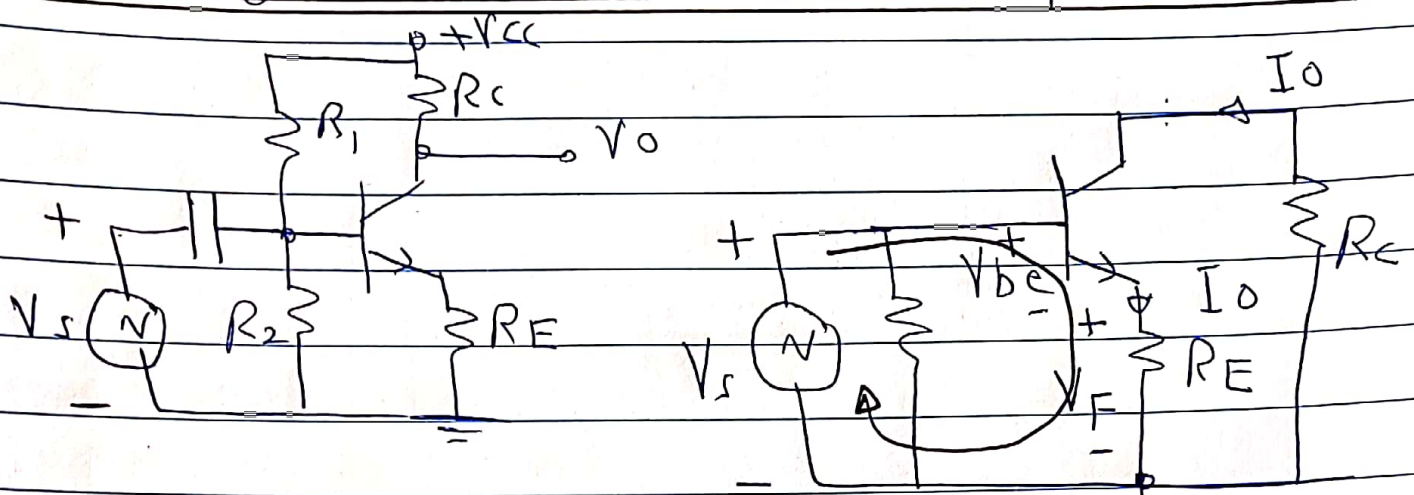 +VCC
RC
R1
Vo
+
Vs
N
R2
RE
−
Io
+
+
Vbe
−
RC
Io
+
Vs
N
RE
VF
−
−